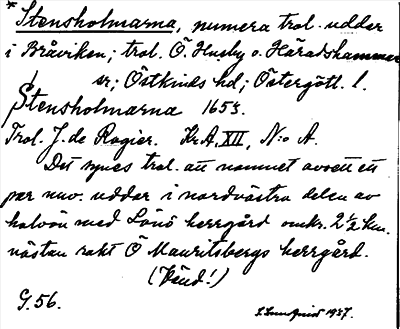 *Stensholmarna, numera trol. uddar
i Bråviken; trol. Ö. Husby o. Häradshammar
sr; Östkinds hd; Östergötl. l.
Stensholmarna 1653.
Trol. J. de Rogier. Kr.A. XII, N:o A.
Det synes trol. att namnet avsett ett
par nuv. uddar i nordvästra delen av
halvön med Lönö herrgård omkr. 2 ½ km.
nästan rakt Ö Mauritsbergs herrgård.
(Vänd!)
G. 56.
1937.